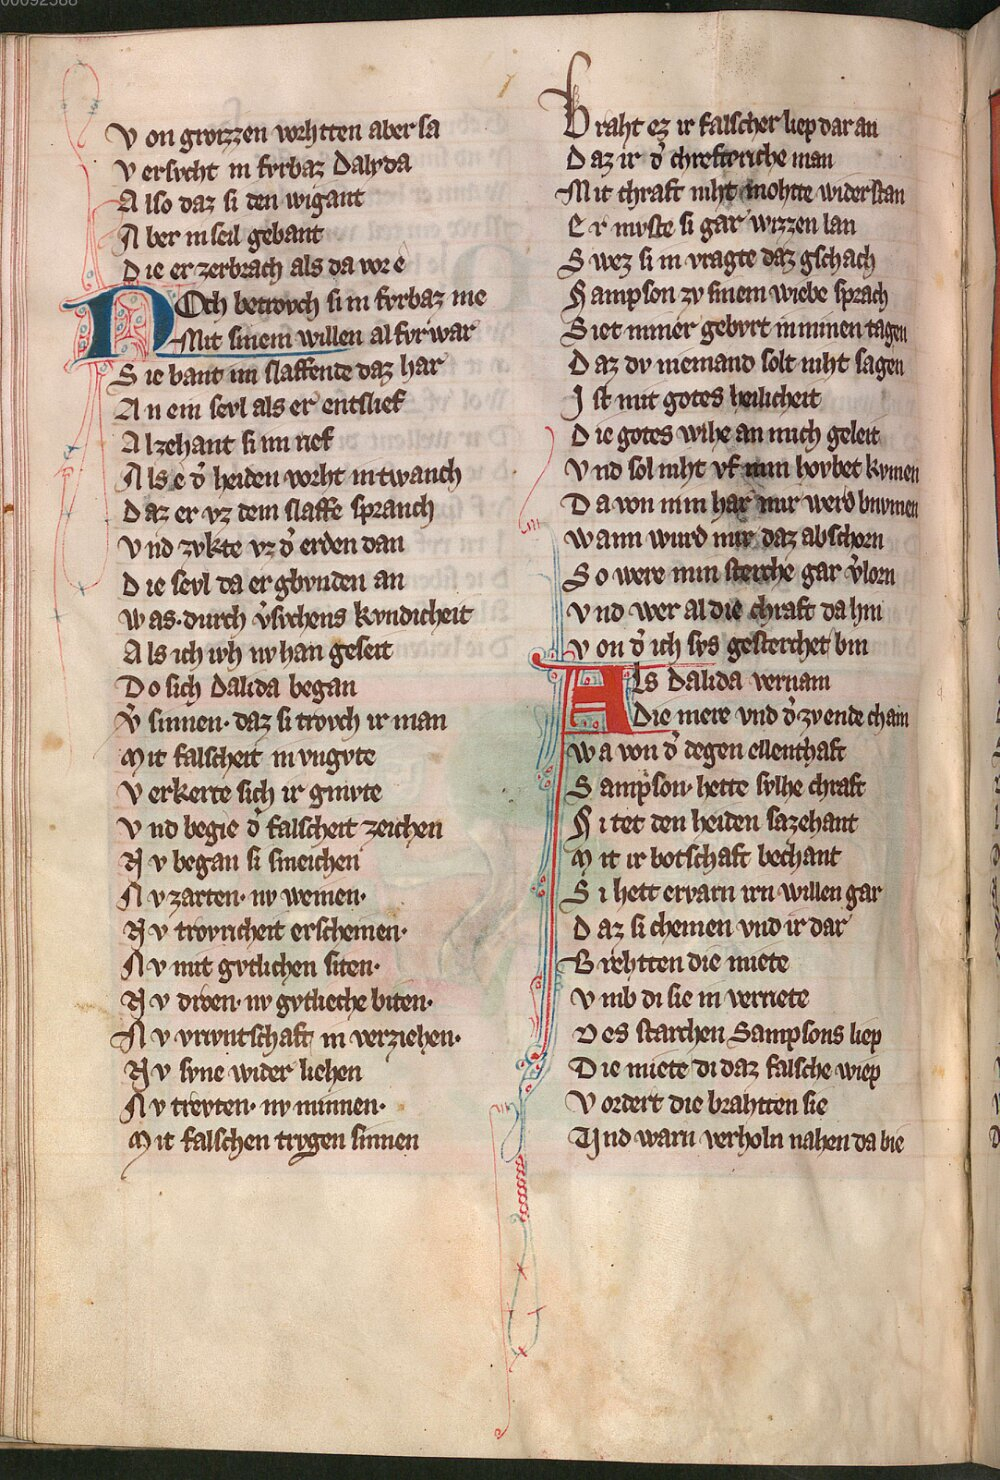 00092588
Von groizzen vorhtten aber sa
Versvcht in fvrbaz Dalyda
Also daz si den wigant
Aber in seil gebant
Die er zerbrach als da vor e
Noch betrovch si in fvrbaz me
Mit sinem willen al fvr war
Sie bant im slaffende daz har
An ein seyl als er entslief
Alzehant si im rief
Als e d̾ heiden vorht in twanch
Daz er vz dem slaffe spranch
Vnd zvkte vz d̾ erden dan
Die seyl da er gbvnden an
Was·durch v̾svchens kvndicheit
Als ich iwh nv han geseit
Do sich Dalida began
V̾sinnen· daz si trovch ir man
Mit falscheit in vngvte
Verkerte sich ir gmvte
Vnd begie d̾ falscheit zeichen
Nv began si smeichen
Nv zarten· nv weinen·
Nv trovricheit erscheinen·
Nv mit gvtlichen siten·
Nv droen· nv gvtlieche biten·
Nv vrivntschaft in verziehen·
Nv syne wider liehen
Nv trevten· nv minnen·
Mit falschen trvgen sinnen
Braht ez ir falscher liep dar an
Daz ir d̾ chrefteriche man
Mit chraft niht mohtte widerstan
Er mvste si gar wizzen lan
Swez si in vragte daz gschach
Sampson zv sinem wiebe sprach
Siet immer gebvrt in minen tagen
Daz dv niemand solt niht sagen
Ist mit gotes heilicheit
Die gotes wihe an mich geleit
Vnd sol niht vf min hovbet kvmen
Da von min har mir werd bnvmen
Wann wurd mir daz abschorn
So were min sterche gar v̾lorn
Vnd wer al die chraft da hin
Von d̾ ich svs gesterchet bin
Als Dalida vernam
Die mere vnd d̾ zv ende cham
Wa von d̾ degen ellenthaft
Sampson· hette sylhe chraft
Si tet den heiden sazehant
Mit ir botschaft bechant
Si hett ervarn irn willen gar
Daz si chemen vnd ir dar
Brehtten die miete
Vmb di sie in verriete
Des starchen Sampsons liep
Die miete di daz falsche wiep
Vordert die brahtten sie
Vnd warn verholn nahen da bie